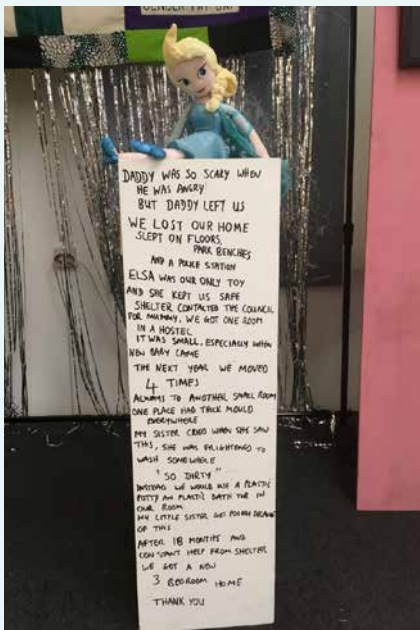 GENDER PAY GAP
DADDY WAS SO SCARY WHEN
HE WAS ANGRY
BUT DADDY LEFT US
WE LOST OUR HOME
SLEPT ON FLOORS,
PARK BENCHES
AND A POLICE STATION
ELSA WAS OUR ONLY TOY
AND SHE KEPT US SAFE
SHELTER CONTACTED THE COUNCIL
FOR MUMMY, WE GOT ONE ROOM
IN A HOSTEL
IT WAS SMALL, ESPECIALLY WHEN
NEW BABY CAME
THE NEXT YEAR WE MOVED
4 TIMES
ALWAYS TO ANOTHER SMALL ROOM
ONE PLACE HAD THICK MOULD
EVERYWHERE
MY SISTER CRIED WHEN SHE SAW
THIS, SHE WAS FRIGHTENED TO
WASH SOMEWHERE
"SO DIRTY"
INSTEAD WE WOULD USE A PLASTIC
POTTY AN PLASTIC BATH TUB IN
OUR ROOM
MY LITTLE SISTER GOT POORLY
OF THIS
AFTER 18 MONTHS AND
CONSTANT HELP FROM SHELTER
WE GOT A NEW
3 BEDROOM HOME
THANK YOU